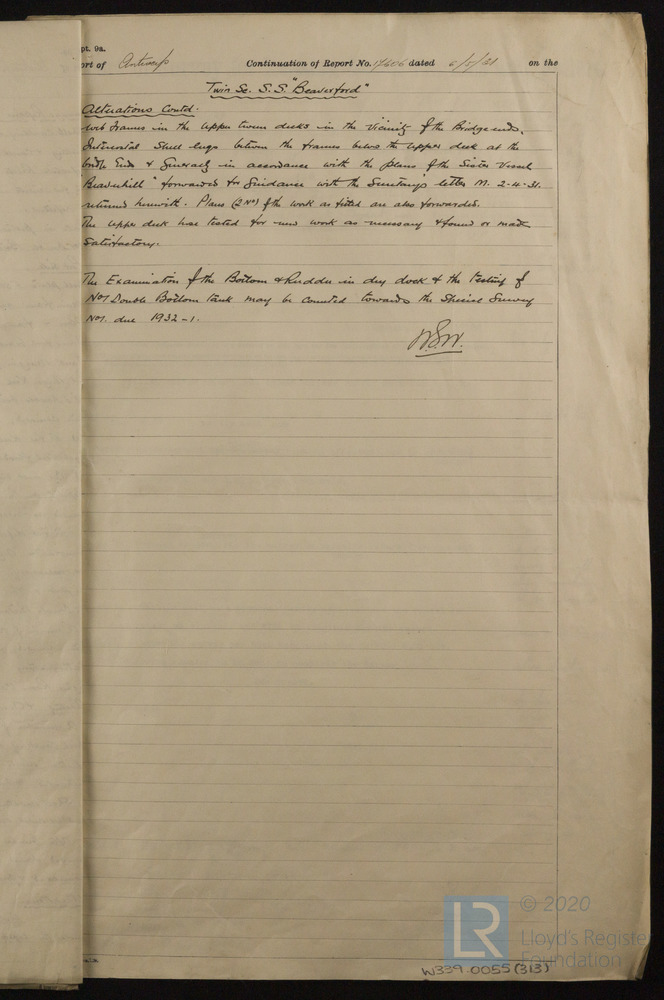 pt. 9a.
ort of Antwerp Continuation of Report No. 17606 dated 6/5/31 on the
Twin Sc. S.S. "Beaverford"
Alterations Contd.
Web frames in the upper tween decks in the vicinity of the Bridge ends.
Intercostal Shell lugs between the frames below the upper deck at the
bridge Ends & Generally in accordance with the plans of the Sister Vessel
"Beaverhill" forwarded for Guidance with the Secretary's letter M. 2-4-31.
returned herewith. Plans (2 No) of the work as fitted are also forwarded.
The upper deck hose tested for new work as necessary & found or made
Satisfactory.
The Examination of the Bottom & Rudder in dry dock & the testing of
No1 Double Bottom tank may be counted towards the Special Survey
No1. due 1932-1.
W.339.0055 (313)
LR
© 2020
Lloyd's Register
Foundation